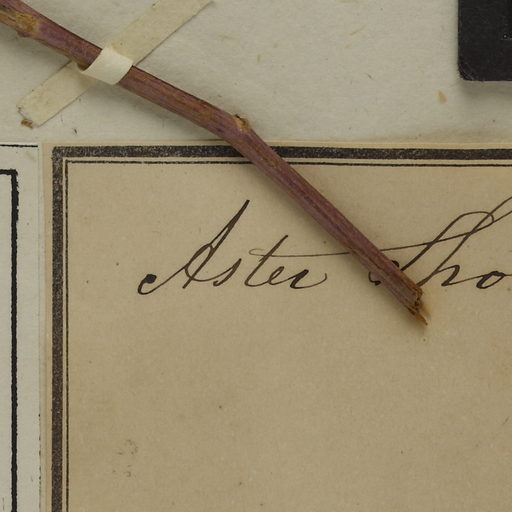 Aster Sho